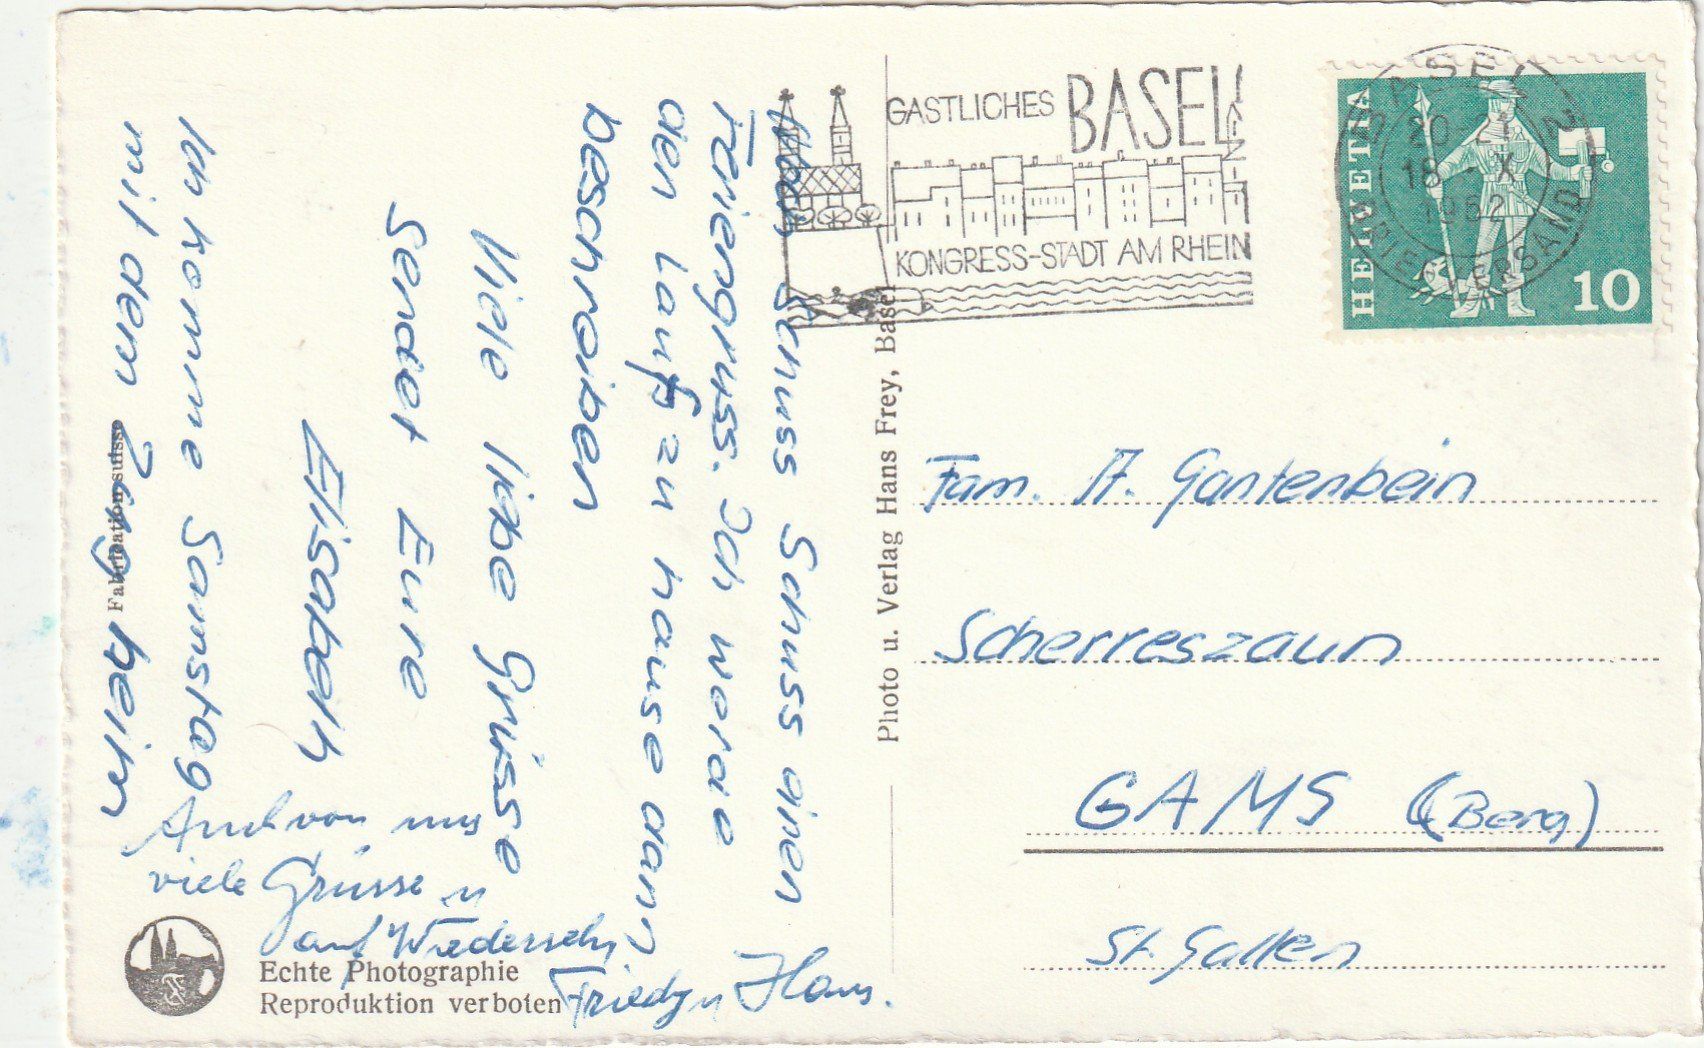 GASTLICHES BASEL
KONGRESS-STADT AM RHEIN
BASEL 2
20-21
18. X
1962
BRIEFVERSAND
HELVETIA
10
zum Schluss einen
Feriengruss. Ich werde
den Lauf zu hause dann
beschreiben
Viele liebe Grüsse
Sendet Eure
Elisabeth
Ich komme Samstag
mit dem Zug heim
Auch von uns
viele Grüsse u
auf Wiedersehn
Friedy u Hans.
Photo u. Verlag Hans Frey, Basel
Fam. A. Gantenbein
Scherreszaun
GAMS (Berg)
St. Gallen
Fabrication suisse
Echte Photographie
Reproduktion verboten